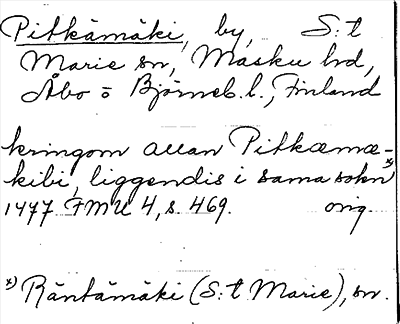 Pitkämäki, by, S:t
Marie sn, Masku hd,
Åbo o Björneb. l., Finland
kringom allan Pitkæmæ-
kibi, liggendis i sama sokn x)
1477 FMU 4, s. 469. orig.
x) Räntämäki (S:t Marie), sn.